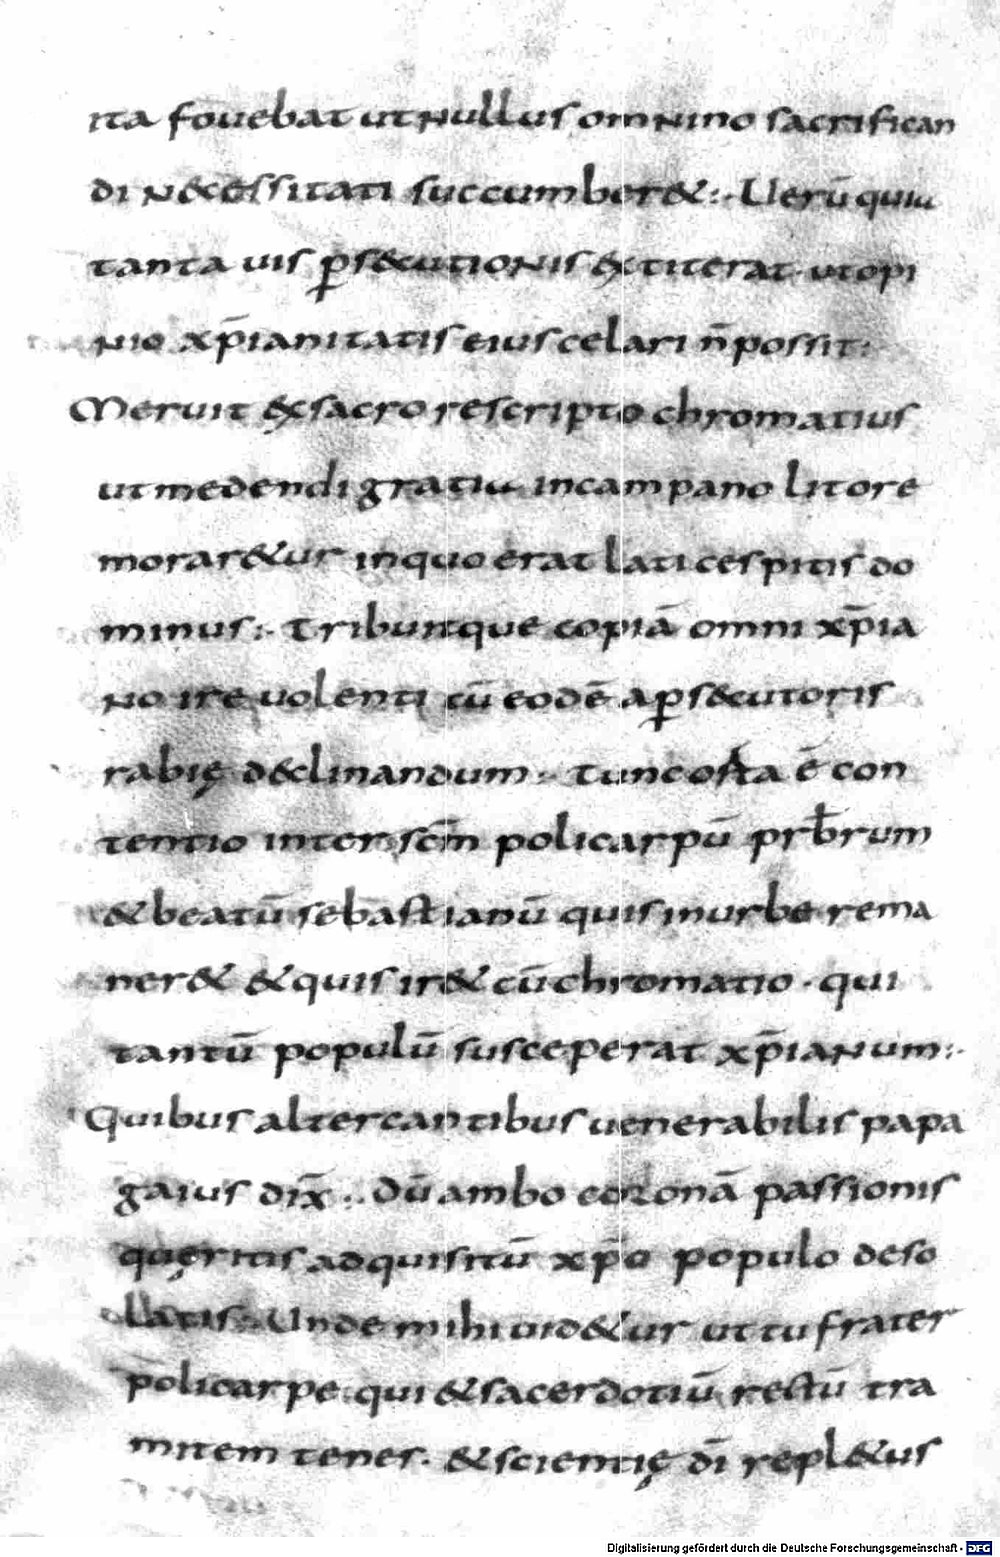 ita fouebat ut nullus omnino sacrifican
di n&cessitati succumber&:· Uerū quia
tanta uis p̱s&cutionis extiterat· ut opi
nio xp̄ianitatis eius celari n̄ possit:·
Meruit ex sacro rescripto chromatius
ut medendi gratia in campano litore
morar&ur in quo erat lati cespitis do
minus:· tribuitque copiā omni xp̄ia
no ire uolenti cū eodē a p̱s&cutoris
rabię d&clinandum:· tunc orta ē con
tentio inter sc̄m policarpū prb̄rum
& beatū sebastianū quis in urbe rema
ner& & quis ir& cū chromatio· qui
tantū populū susceperat xp̄ianum:·
Quibus altercantibus uenerabilis papa
gaius dix̄:· dū ambo coronā passionis
quęritis adquisitū xp̄o populo deso
latis:· Unde mihi uid&ur ut tu frater
policarpe qui & sacerdotiū rectū tra
mitem tenes· & scientię dī repl&us
Digitalisierung gefördert durch die Deutsche Forschungsgemeinschaft - DFG